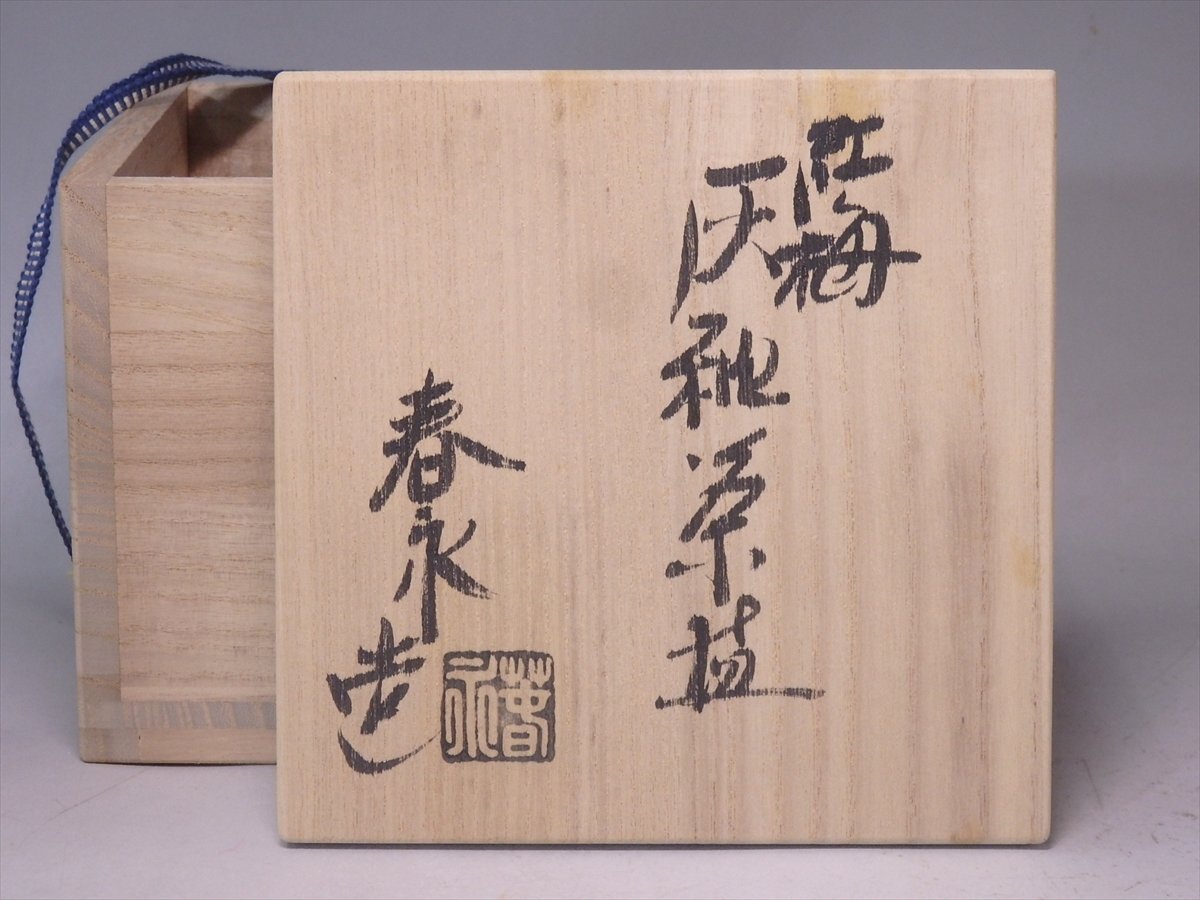 紅梅
灰釉茶
春永造
春永